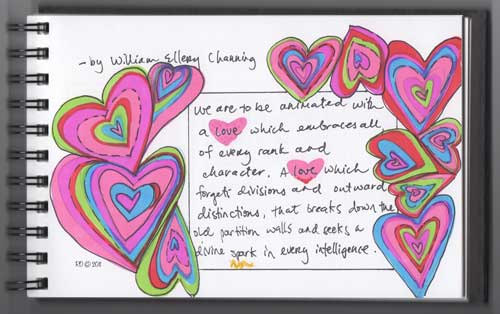 - by William Ellery Channing
We are to be animated with
a love which embraces all,
of every rank and
character. A love which
forgets divisions and outward
distinctions, that breaks down the
old partition walls and seeks a
divine spark in every intelligence.
© 2011